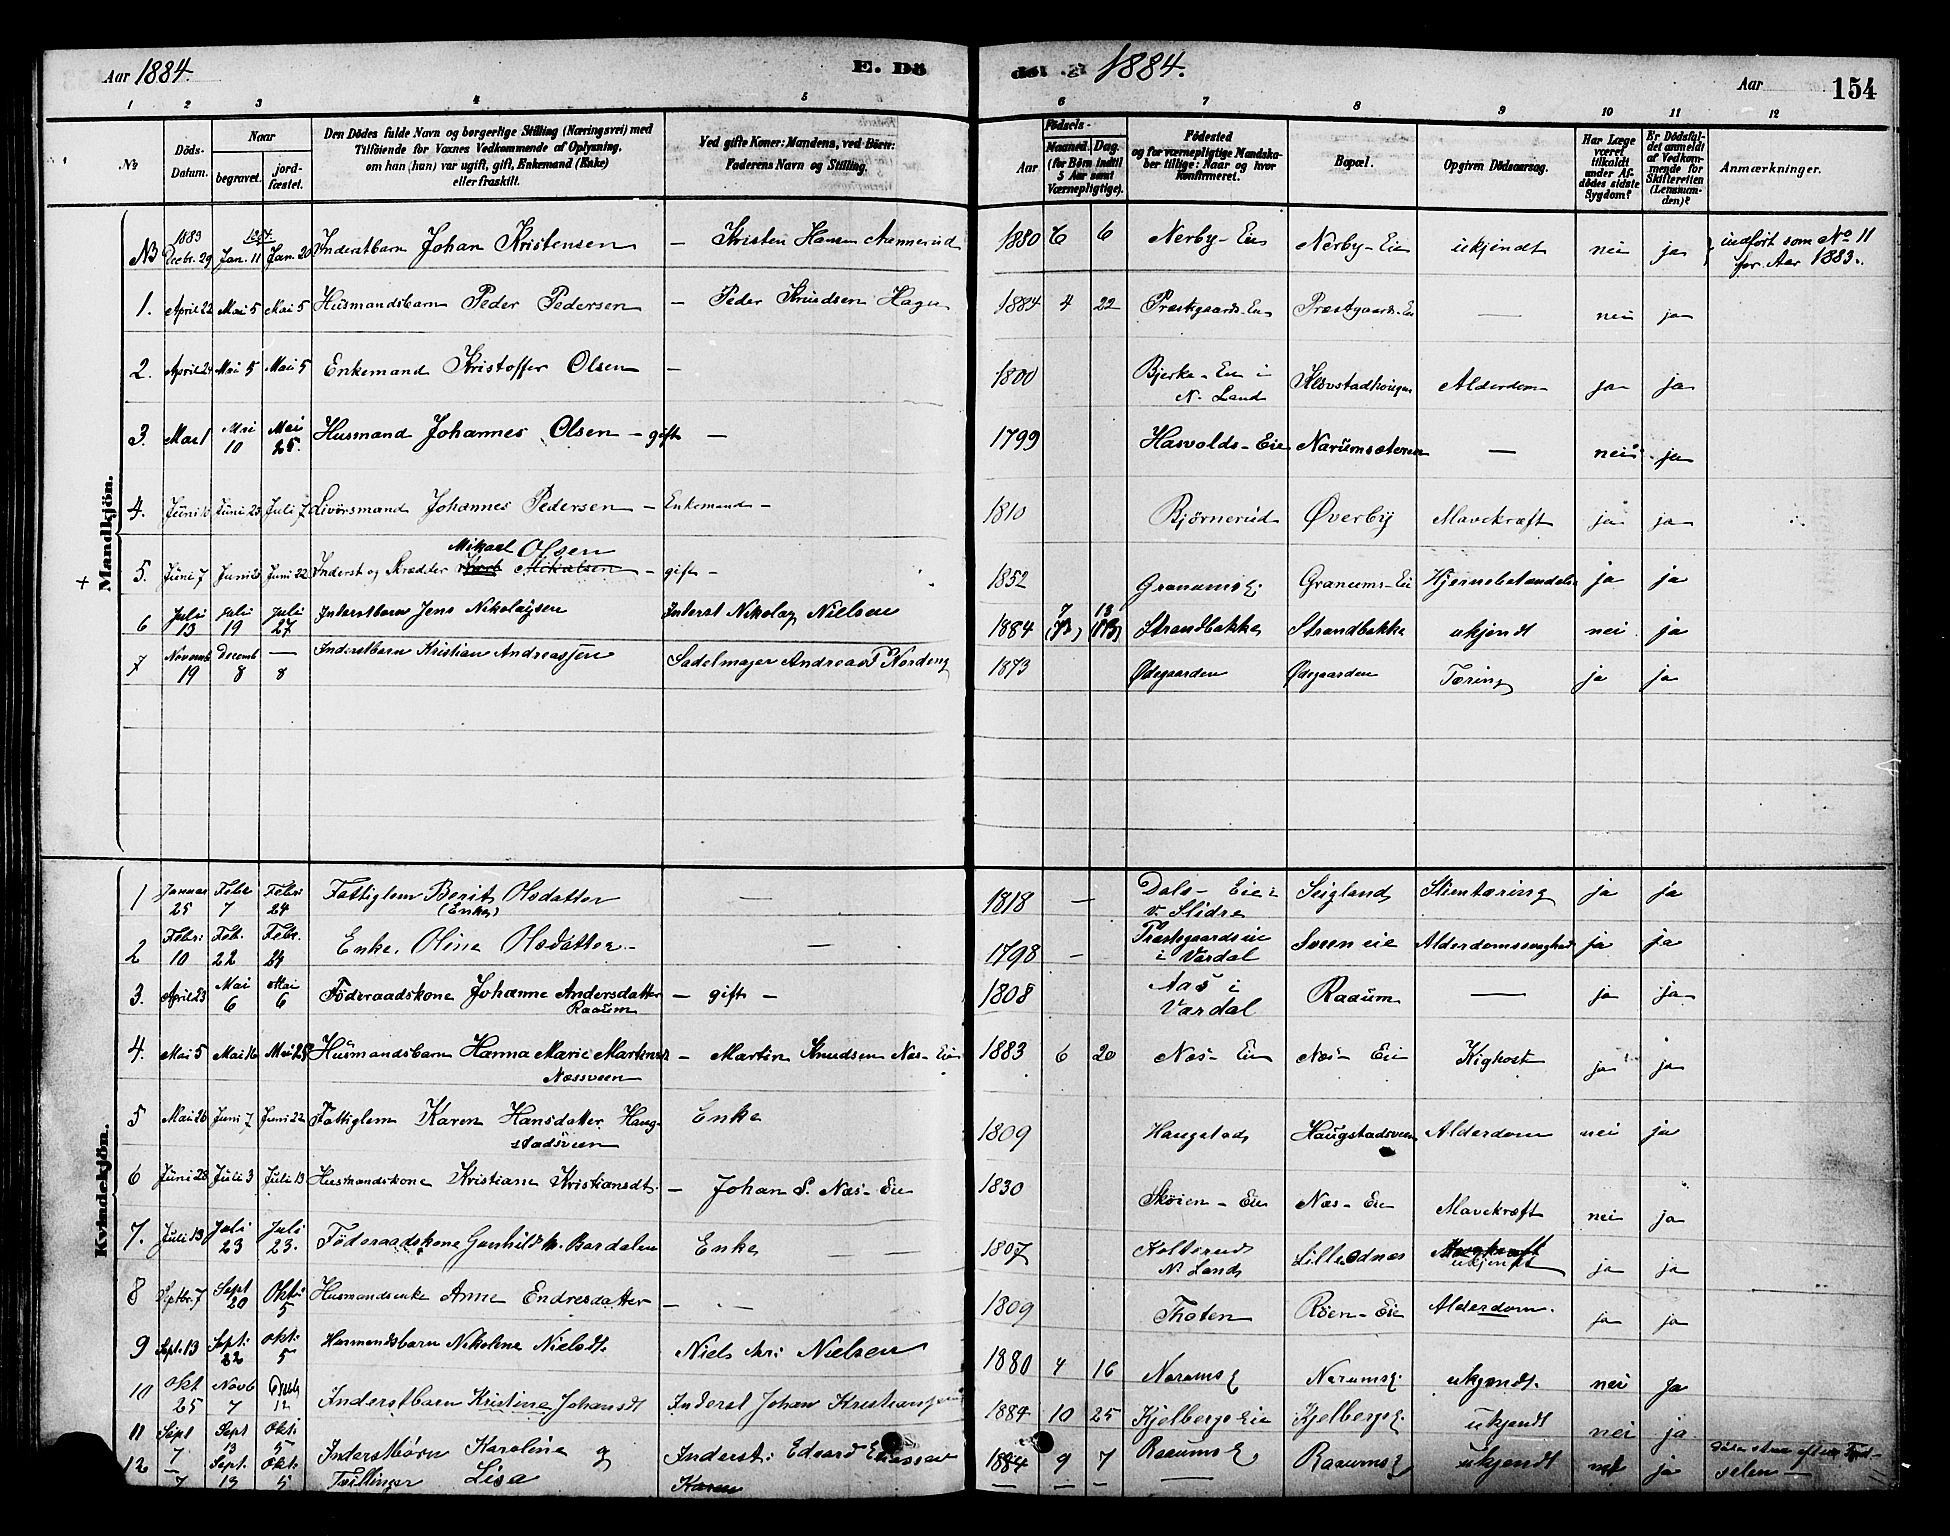 Aar 1884. E. Dö
de. E. 1884. Aar 154
1 2 3 4 5 6 7 8 9 10 11 12
No Döds-Datum. Naar begravet. jordfæstet. Den Dödes fulde Navn og borgerlige Stilling (Næringsvei) med Tilföiende for Voxnes Vedkommende af Oplysning, om han (hun) var ugift, gift, Enkemand (Enke) eller fraskilt. Ved gifte Koner: Mandens, ved Börn: Faderens Navn og Stilling. Födsels- Aar Maaned. Dag. (for Börn indtil 5 Aar samt Værnepligtige). Födested og for værnepligtige Mandskaber tillige: Naar og hvor Konfirmeret. Bopæl. Opgiven Dödsaarsag. Har Læge været tilkaldt under Afdödes sidste Sygdom? Er Dödsfaldet anmeldt af Vedkommende for Skifteretten (Lensmanden)? Anmærkninger.
Mandkjön.
NB 1883 Decbr. 29 1884 Jan. 11 Jan. 20 Inderstbarn Johan Kristensen — Kristen Hansen 1880 6 Nerby-Eie Nerby-Eie ukjendt nei ja indført som No 11 for Aar 1883.
1. April 22 Mai 5 Mai 5 Husmandsbarn Peder Pedersen — Peder Knudsen Hagen 1884 4 22 Præstegaards-Eie Præstgaards-Eie — nei ja
2. April 24 Mai 5 Mai 5 Enkemand Kristoffer Olsen — 1800 Bjerke-Eie i N. Land Klovstadhougen Alderdom ja ja
3. Mai 1 Mai 10 Mai 25. Husmand Johannes Olsen — gift — 1799 Hasvolds-Eie Narumsæteren — nei ja
4. Juni Juni 23 Juli 7 Livörsmand Johannes Pedersen — Enkemand — 1810 Bjørnerud Øverby Mavekræft ja ja
+ 5. Juni 7 Juni Juni 22 Inderst og Skrædder Mikael Olsen Mikalsen — gift — 1852 Granums E. Granums-Eie Hjernebetændelse ja ja
6 Juli 13 Juli 19 Juli 27 Inderstbarn Jens Nikolaysen Inderst Nikolay Nielsen 1884 7 13 Strandbakke Strandbakke ukjendt nei ja
7 Novemb 19 Decemb 8 — 8 Inderstbarn Kristian Andreassen Sadelmager Andreas P Nordeng 1873 Ødegaarden Ødegaarden Tæring ja ja
Kvindekjön.
1 Januar 25 Febr 7 Febr: 24 Fattiglem Berit Olsdatter (Enke) — 1818 — Dale-Eie i v. Slidre Seigland Stentæring ja ja
2 Febr: 10 Feb. 22 Febr. 24 Enke, Oline Olsdatter — — 1798 — Præstegaardseie i Vardal Sveen eie Alderdomssvaghed ja ja
3. April 23 Mai 6 Mai 6 Föderaadskone Johanne Andersdatter Raaum — gift — 1808 Aas i Vardal Raaum — ja ja
4. Mai 5 Mai 16 Mai 25 Husmandsbarn Hanna Marie Martinsd. Næssveen — Martin Knudsen Næs-Eie 1883 6 20 Næs-Eie Næs-Eie Kighoste ja ja
5 Mai 26 Juni 7 Juni 22 Fattiglem Karen Hansdatter Haugstadsveen Enke 1809 Haugstad Haugstadsveen Alderdom nei ja
6 Juni 28 Juli 3 Juli 13 Husmandskone Kristiane Kristiansdt. — Johan S. Næs-Eie 1830 Skøien-Eie Næs-Eie Mavekræft nei ja
7. Juli 13 Juli 23 Juli 23. Föderaadskone Gunhild Bardalen Enke — — 1807 Holterud N. Land Lilleodnæs ukjendt ja ja
8 Septbr. 7 Sept 20 Oktr: 5 Husmandsenke Anne Endresdatter — — 1809 Thoten Röen-Eie Alderdom. ja ja
9 Sept. 13 Sept: 22 Okt: 5 Husmandsbarn Nikoline Nielsdt. Niels Nielsen 1880 4 16 Narums E Narums E. ukjendt. nei ja
10 Okt 25 Novb 7 Decbr 12 Inderstbarn Kristine Johansdt Inderst Johan Kristiansen 1884 10 25 Kjelbergs eie Kjelbergs E. ukjendt nei ja
11 Sept 7 Sept 13 Okt: 5 Inderstbörn Karoline og Inderst: Edvard Eliassen 1884 9 7 Raaums E Raaums E ukjendt nei ja efter Fødselen —
12 — 7 Sept. 13 Okt: 5 Tvillinger Lisa Karen — — — —